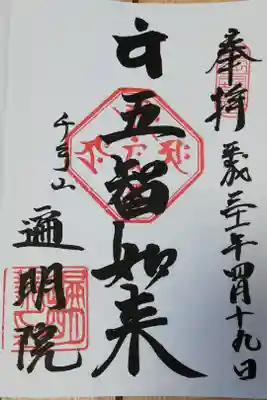 奉拝 平成三十一年四月十九日
五智如来
千手山
遍明院